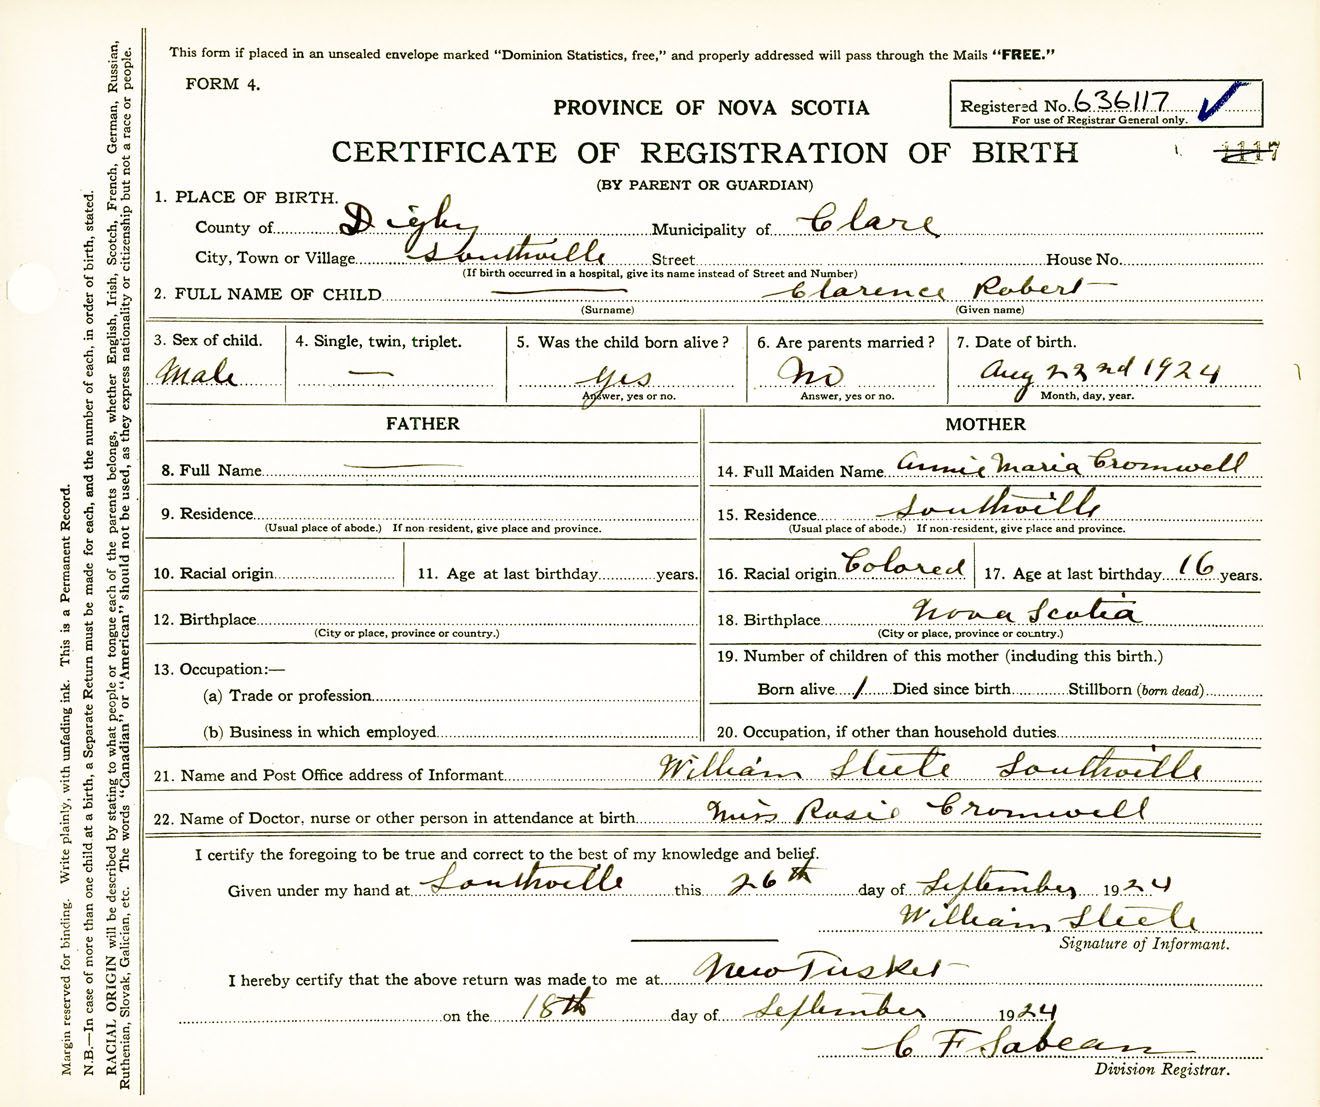 This form if placed in an unsealed envelope marked "Dominion Statistics, free," and properly addressed will pass through the Mails "FREE."
FORM 4.
Registered No. 636117
For use of Registrar General only.
PROVINCE OF NOVA SCOTIA
CERTIFICATE OF REGISTRATION OF BIRTH
1117
(BY PARENT OR GUARDIAN)
1. PLACE OF BIRTH.
County of Digby Municipality of Clare
City, Town or Village Southville Street House No.
(If birth occurred in a hospital, give its name instead of Street and Number)
2. FULL NAME OF CHILD — Clarence Robert
(Surname) (Given name)
3. Sex of child. 4. Single, twin, triplet. 5. Was the child born alive? 6. Are parents married? 7. Date of birth.
Male — Yes No Aug 22nd 1924
Answer, yes or no. Answer, yes or no. Month, day, year.
FATHER MOTHER
8. Full Name — 14. Full Maiden Name Annie Maria Cromwell
9. Residence 15. Residence Southville
(Usual place of abode.) If non-resident, give place and province. (Usual place of abode.) If non-resident, give place and province.
10. Racial origin 11. Age at last birthday years. 16. Racial origin Colored 17. Age at last birthday 16 years.
12. Birthplace 18. Birthplace Nova Scotia
(City or place, province or country.) (City or place, province or country.)
13. Occupation:— 19. Number of children of this mother (including this birth.)
(a) Trade or profession Born alive 1 Died since birth Stillborn (born dead)
(b) Business in which employed 20. Occupation, if other than household duties
21. Name and Post Office address of Informant William Steele Southville
22. Name of Doctor, nurse or other person in attendance at birth Miss Rosie Cromwell
I certify the foregoing to be true and correct to the best of my knowledge and belief.
Given under my hand at Southville this 26th day of September 1924
William Steele
Signature of Informant.
I hereby certify that the above return was made to me at New Tusket
on the 18th day of September 1924
C F Sabean
Division Registrar.
Margin reserved for binding. Write plainly, with unfading ink. This is a Permanent Record.
N.B.—In case of more than one child at a birth, a Separate Return must be made for each, and the number of each, in order of birth, stated.
RACIAL ORIGIN will be described by stating to what people or tongue each of the parents belongs, whether English, Irish, Scotch, French, German, Russian,
Ruthenian, Slovak, Galician, etc. The words "Canadian" or "American" should not be used, as they express nationality or citizenship but not a race or people.